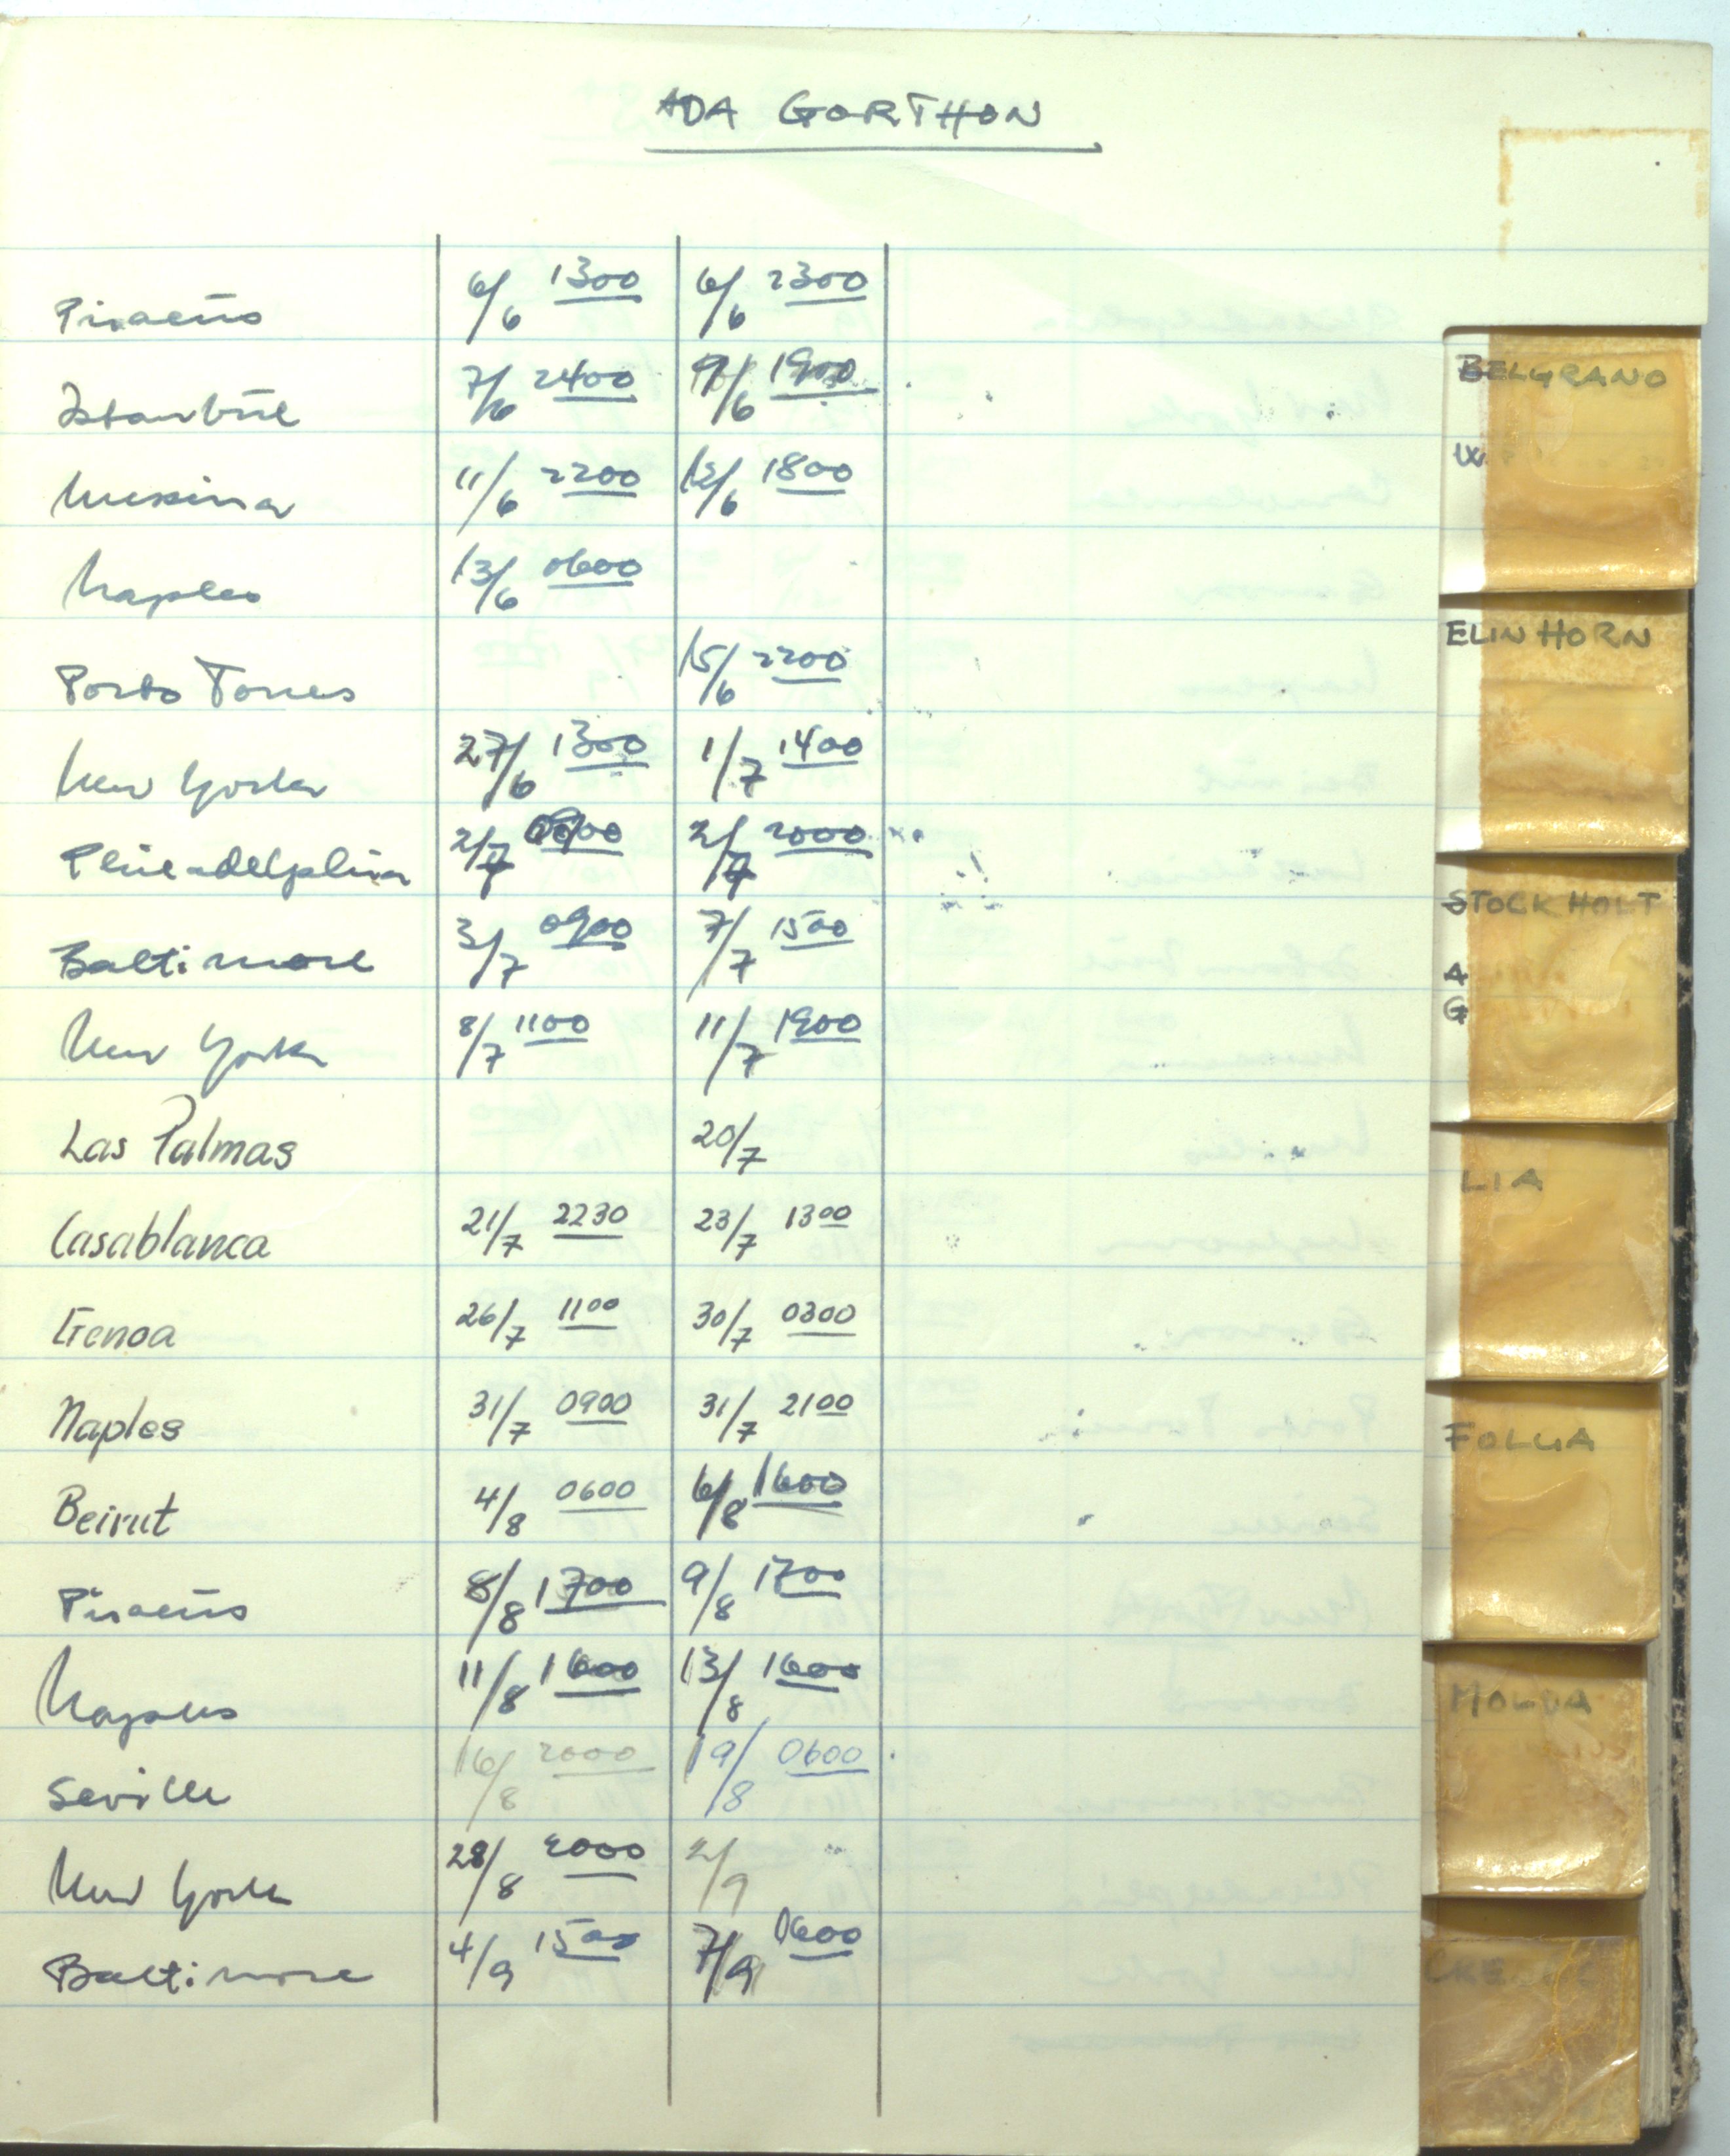 ADA GORTHON
Piraeus 6/6 1300 6/6 2300
Istanbul 7/6 2400 9/6 1900
Messina 11/6 2200 12/6 1800
Naples 13/6 0600
Porto Torres 15/6 2200
New York 27/6 1300 1/7 1400
Philadelphia 2/7 2/7 2000
Baltimore 3/7 0900 7/7 1500
New York 8/7 1100 11/7 1900
Las Palmas 20/7
Casablanca 21/7 2230 23/7 1300
Genoa 26/7 1100 30/7 0300
Naples 31/7 0900 31/7 2100
Beirut 4/8 0600 6/8 1600
Piraeus 8/8 1700 9/8 1700
Naples 11/8 1600 13/8 1600
Seville 16/8 2000 19/8 0600
New York 28/8 2000 2/9
Baltimore 4/9 1500 7/9 0600
BELGRANO
ELIN HORN
STOCKHOLT
A
G
LIA
FOLGA